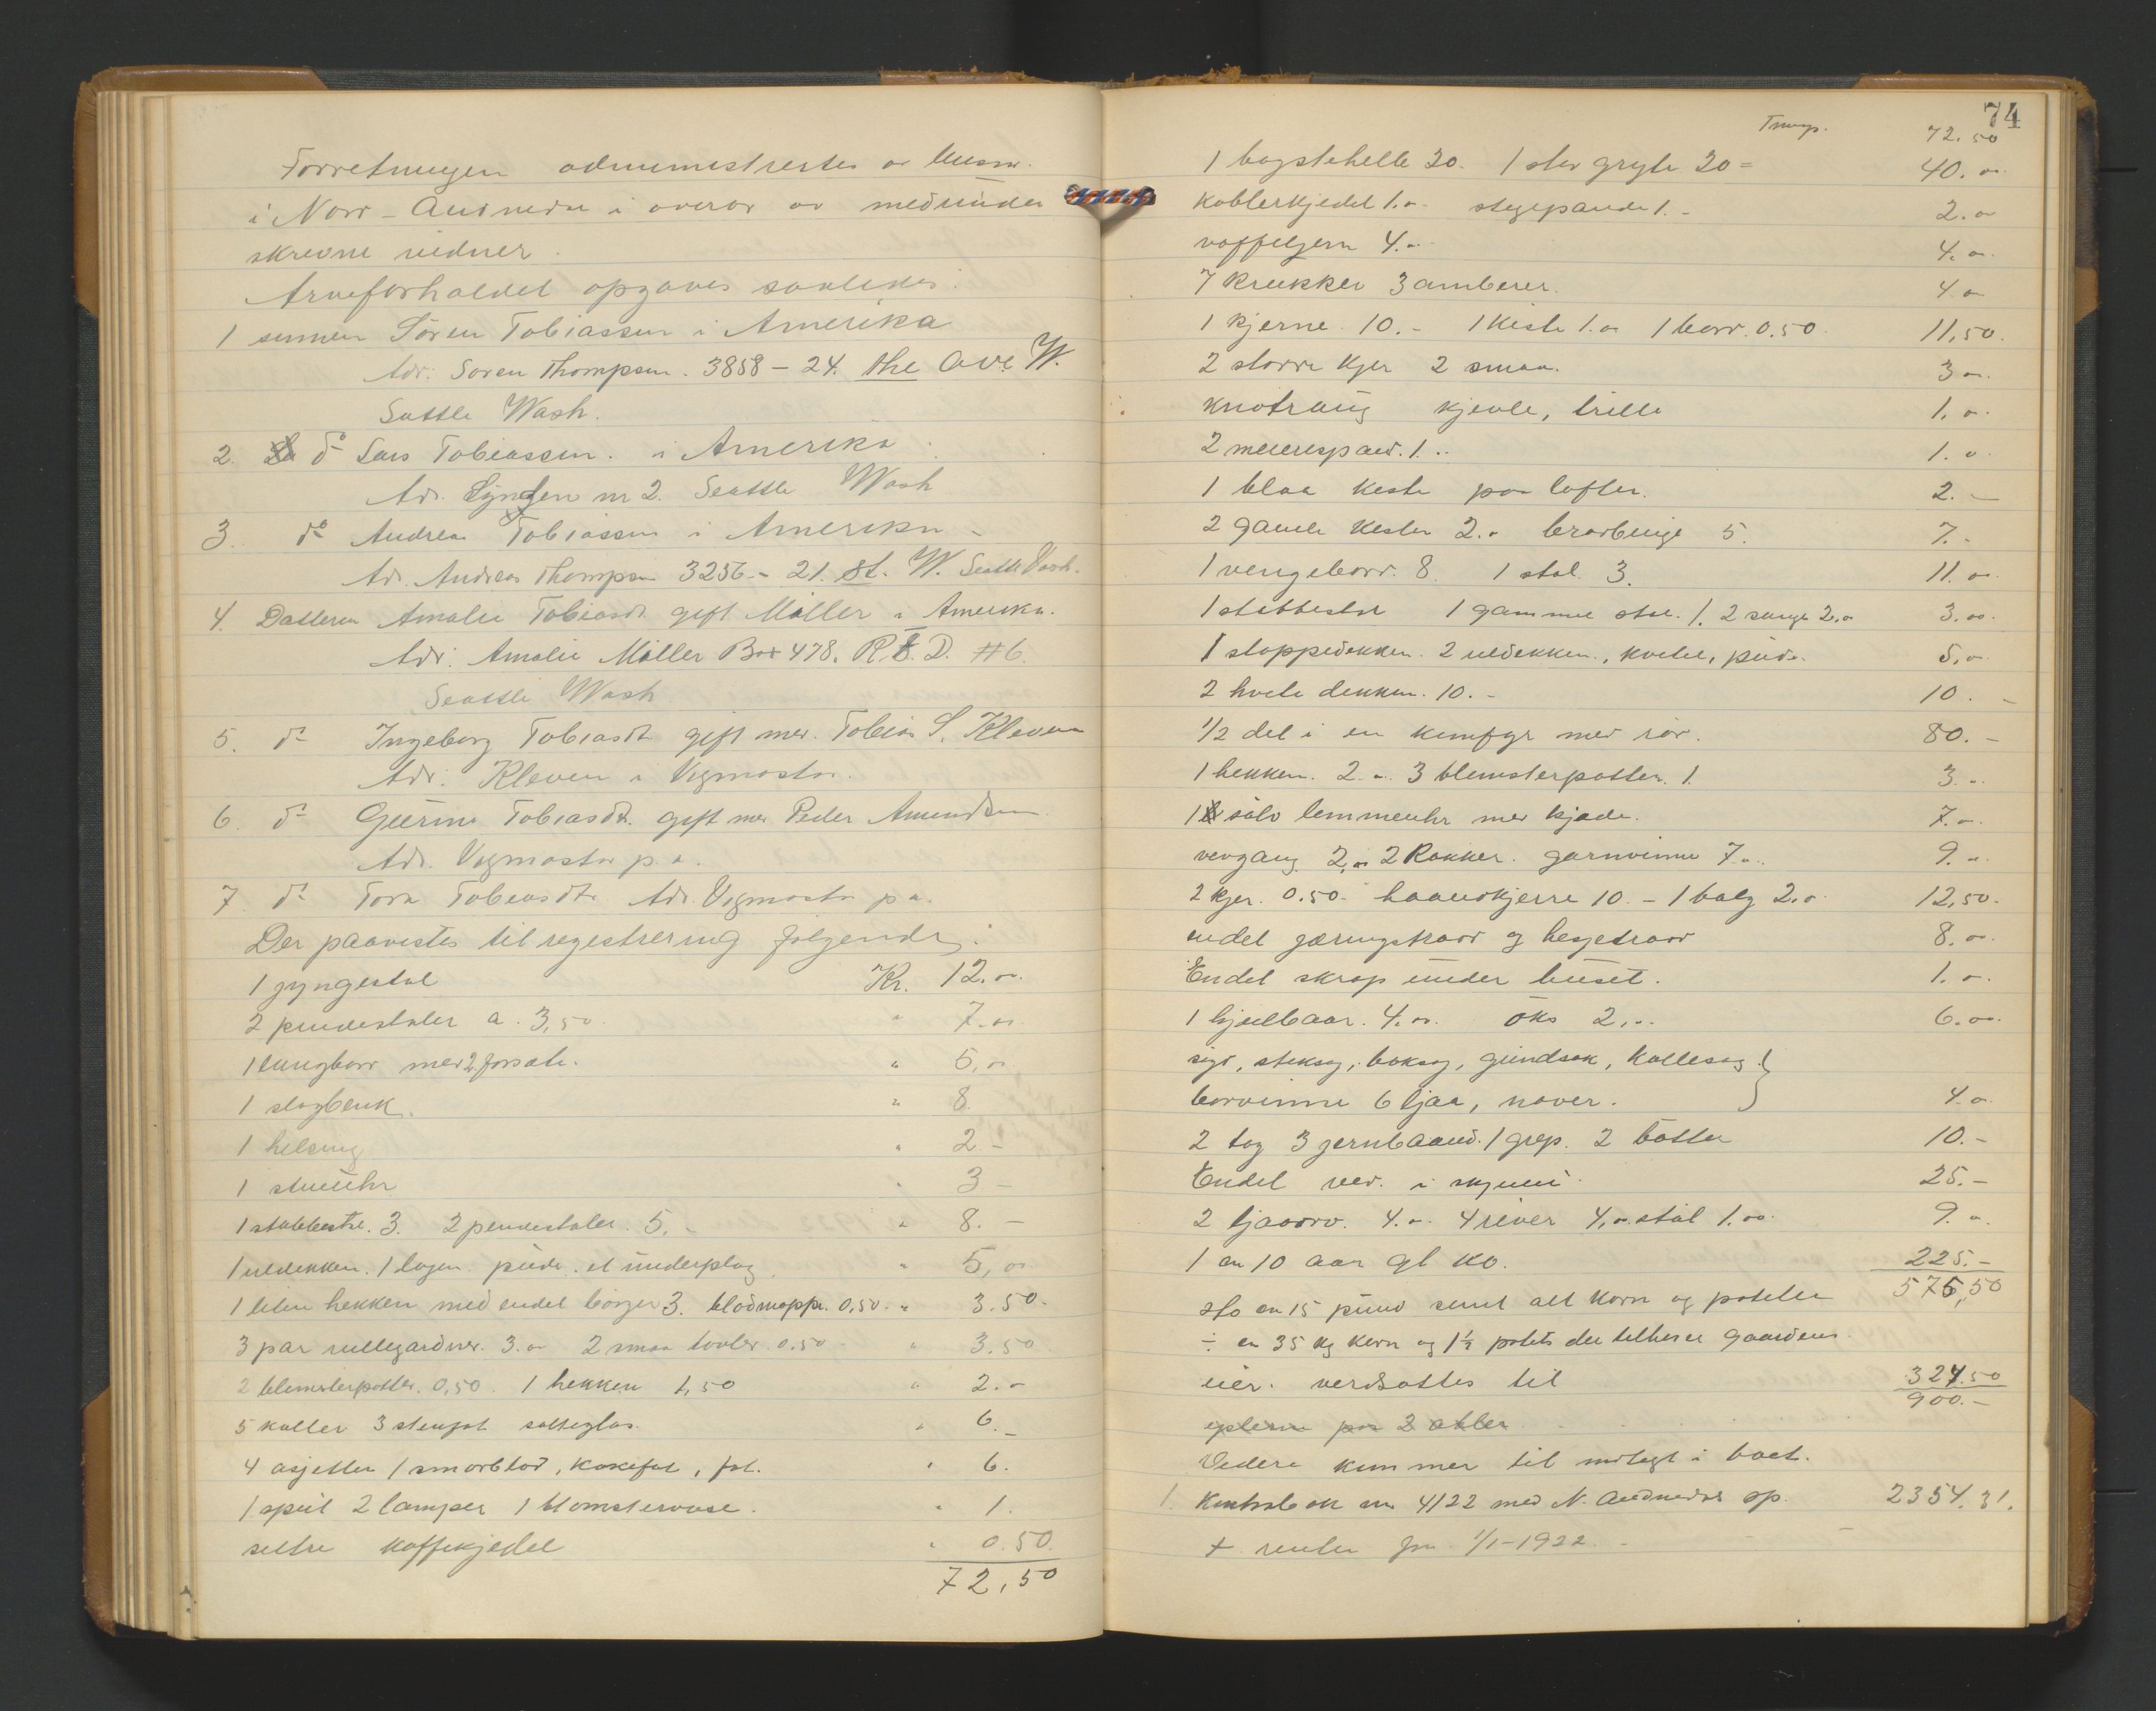 Forretningen administrertes av lensm.
i Nord-Audnedal i overvær av medunder
skrevne vidner.
Arveforholdet opgaves saaledes:
1 sønnen Sören Tobiassen i Amerika
Adr: Soren Thompson. 3858 - 24. the Ave W.
Seattle Wash.
2. do Lars Tobiassen. i Amerika.
Adr. nr 2. Seattle Wash
3. do Andreas Tobiassen i Amerika -
Adr. Andreas Thompson 3256 - 21. St. W. Seattle Wash.
4. Datteren Amalie Tobiasdt. gift Möller i Amerika.
Adr: Amalie Möller Box 478. R.F.D. #6.
Seattle Wash
5. do Ingeborg Tobiasdt gift med Tobias S. Kleven
Adr: Kleven i Vigmostad.
6. do Gurine Tobiasdt. gift med Peder Amundsen
Adr. Vigmostad p.a.
7. do Tora Tobiasdt. Adr. Vigmostad p.a.
Der paavistes til registrering følgende:
1 gyngestol Kr. 12.00
2 pindestoler a. 3,50 " 7.00
1 langbord med 2 forsæte. " 5,00
1 slagbenk. " 8
1 " 2 -
1 stueuhr " 3 -
1 stabbestol. 3. 2 pindestoler. 5. - " 8. -
1 uldekken. 1 lagen. pude. et underplag " 5,00
1 liten hekken med endel bøger 3. 0,50. " 3.50.
3 par rullegardiner. 3.00 2 smaa tavler 0.50 - " 3.50
2 blomsterpotter. 0,50. 1 hekken 1,50 " 2.-
5 kaller 3 stenfat salteglas. " 6.-
4 asjetter 1 smørblad, kakefat, fat. " 6.
1 speil 2 lamper 1 blomstervase. " 1.
kaffekjedel " 0.50.
72,50
74
Transp. 72.50
1 bagstehelle 20. 1 stor gryte 20 = 40.00
koblerkjedel 1.00 stegepande 1.- 2.00
vaffeljern 4.00 4.00
7 krukker 3 amberer. 4.00
1 kjerne 10.- 1 kiste 1.00 1 bord. 0.50. 11,50.
2 større kjer 2 smaa. 3 00.
knotraug kjevle, trille 1.00
2 meierispand. 1.00 1.00
1 blaa kiste paa loftet. 2. -
2 gamle kister 2.00 brødbinge 5. 7.-
1 vengebord. 8. 1 stol 3. 11.00
1 stabbestol 1 gammel stol. 1. 2 senge 2.00 3.00.
1 stoppedekken. 2 uldekken., kvitel, pude. 5,00
2 hvite dekken. 10.- 10. -
1/2 del i en komfyr med rør. 80.-
1 hekken. 2.00 3 blomsterpotter. 1. 3.00
1 sölv lommeuhr med kjæde. 7.00
vevgang 2,00 2 Rokker. garnvinne 7.00 9.00
2 kjer. 0.50. haandkjerre 10.- 1 balg 2.00 12,50.
endel gjæringstraad og hesjetraad 8.00
Endel skrap under huset. 1.00
1 hjulbaar. 4.00. öks 2.00 6.00.
sigd, stiksag, baksag, grindsak, kallesag }
borvinne 6 ljaa, naver. } 4.00
2 tog 3 jernbaand. 1 grep. 2 bøtter 10.-
Endel ved. i skjuni. 25.-
2 ljaaorv. 4.00 4 river 4,00 staal 1.00 9.00
1 en 10 aar gl ko. 225.-
576,50
Høi en 15 pund samt alt korn og poteter
÷ en 35 kg korn og 1 1/2 potets der tilhører gaardens
eier. verdsattes til 324.50
900.-
eplerne paa 2 abler
Videre kommer til indtegt i boet.
1. Kontrabok nr 4122 med N. Audnedal sp. 2354.31.
+ renter fra 1/1-1922. -